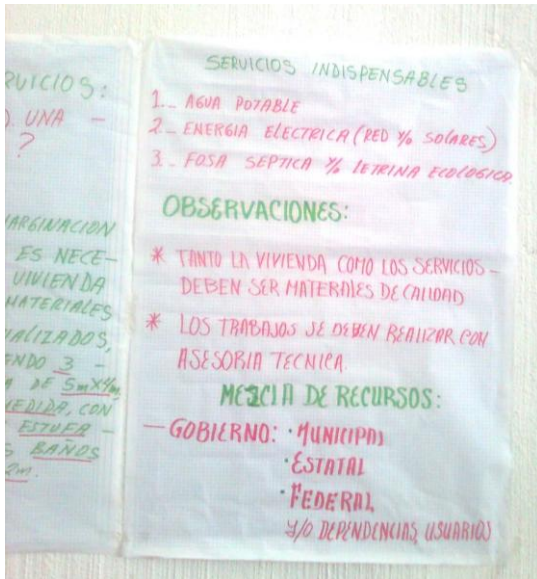 RVICIOS:
). UNA -
?
MARGINACION
ES NECE-
VIVIENDA
MATERIALES
IALIZADOS,
ENDO 3 -
A DE 5m x 4m
MEDIDA, CON
ESTUFA -
S BAÑOS
2m.
SERVICIOS INDISPENSABLES
1.- AGUA POTABLE
2.- ENERGIA ELECTRICA (RED Y/O SOLARES)
3.- FOSA SEPTICA Y/O LETRINA ECOLOGICA.
OBSERVACIONES:
* TANTO LA VIVIENDA COMO LOS SERVICIOS -
DEBEN SER MATERALES DE CALIDAD
* LOS TRABAJOS SE DEBEN REALIZAR CON
ASESORIA TECNICA.
MEZCLA DE RECURSOS:
- GOBIERNO: · MUNICIPAL
· ESTATAL
· FEDERAL
Y/O DEPENDENCIAS, USUARIOS